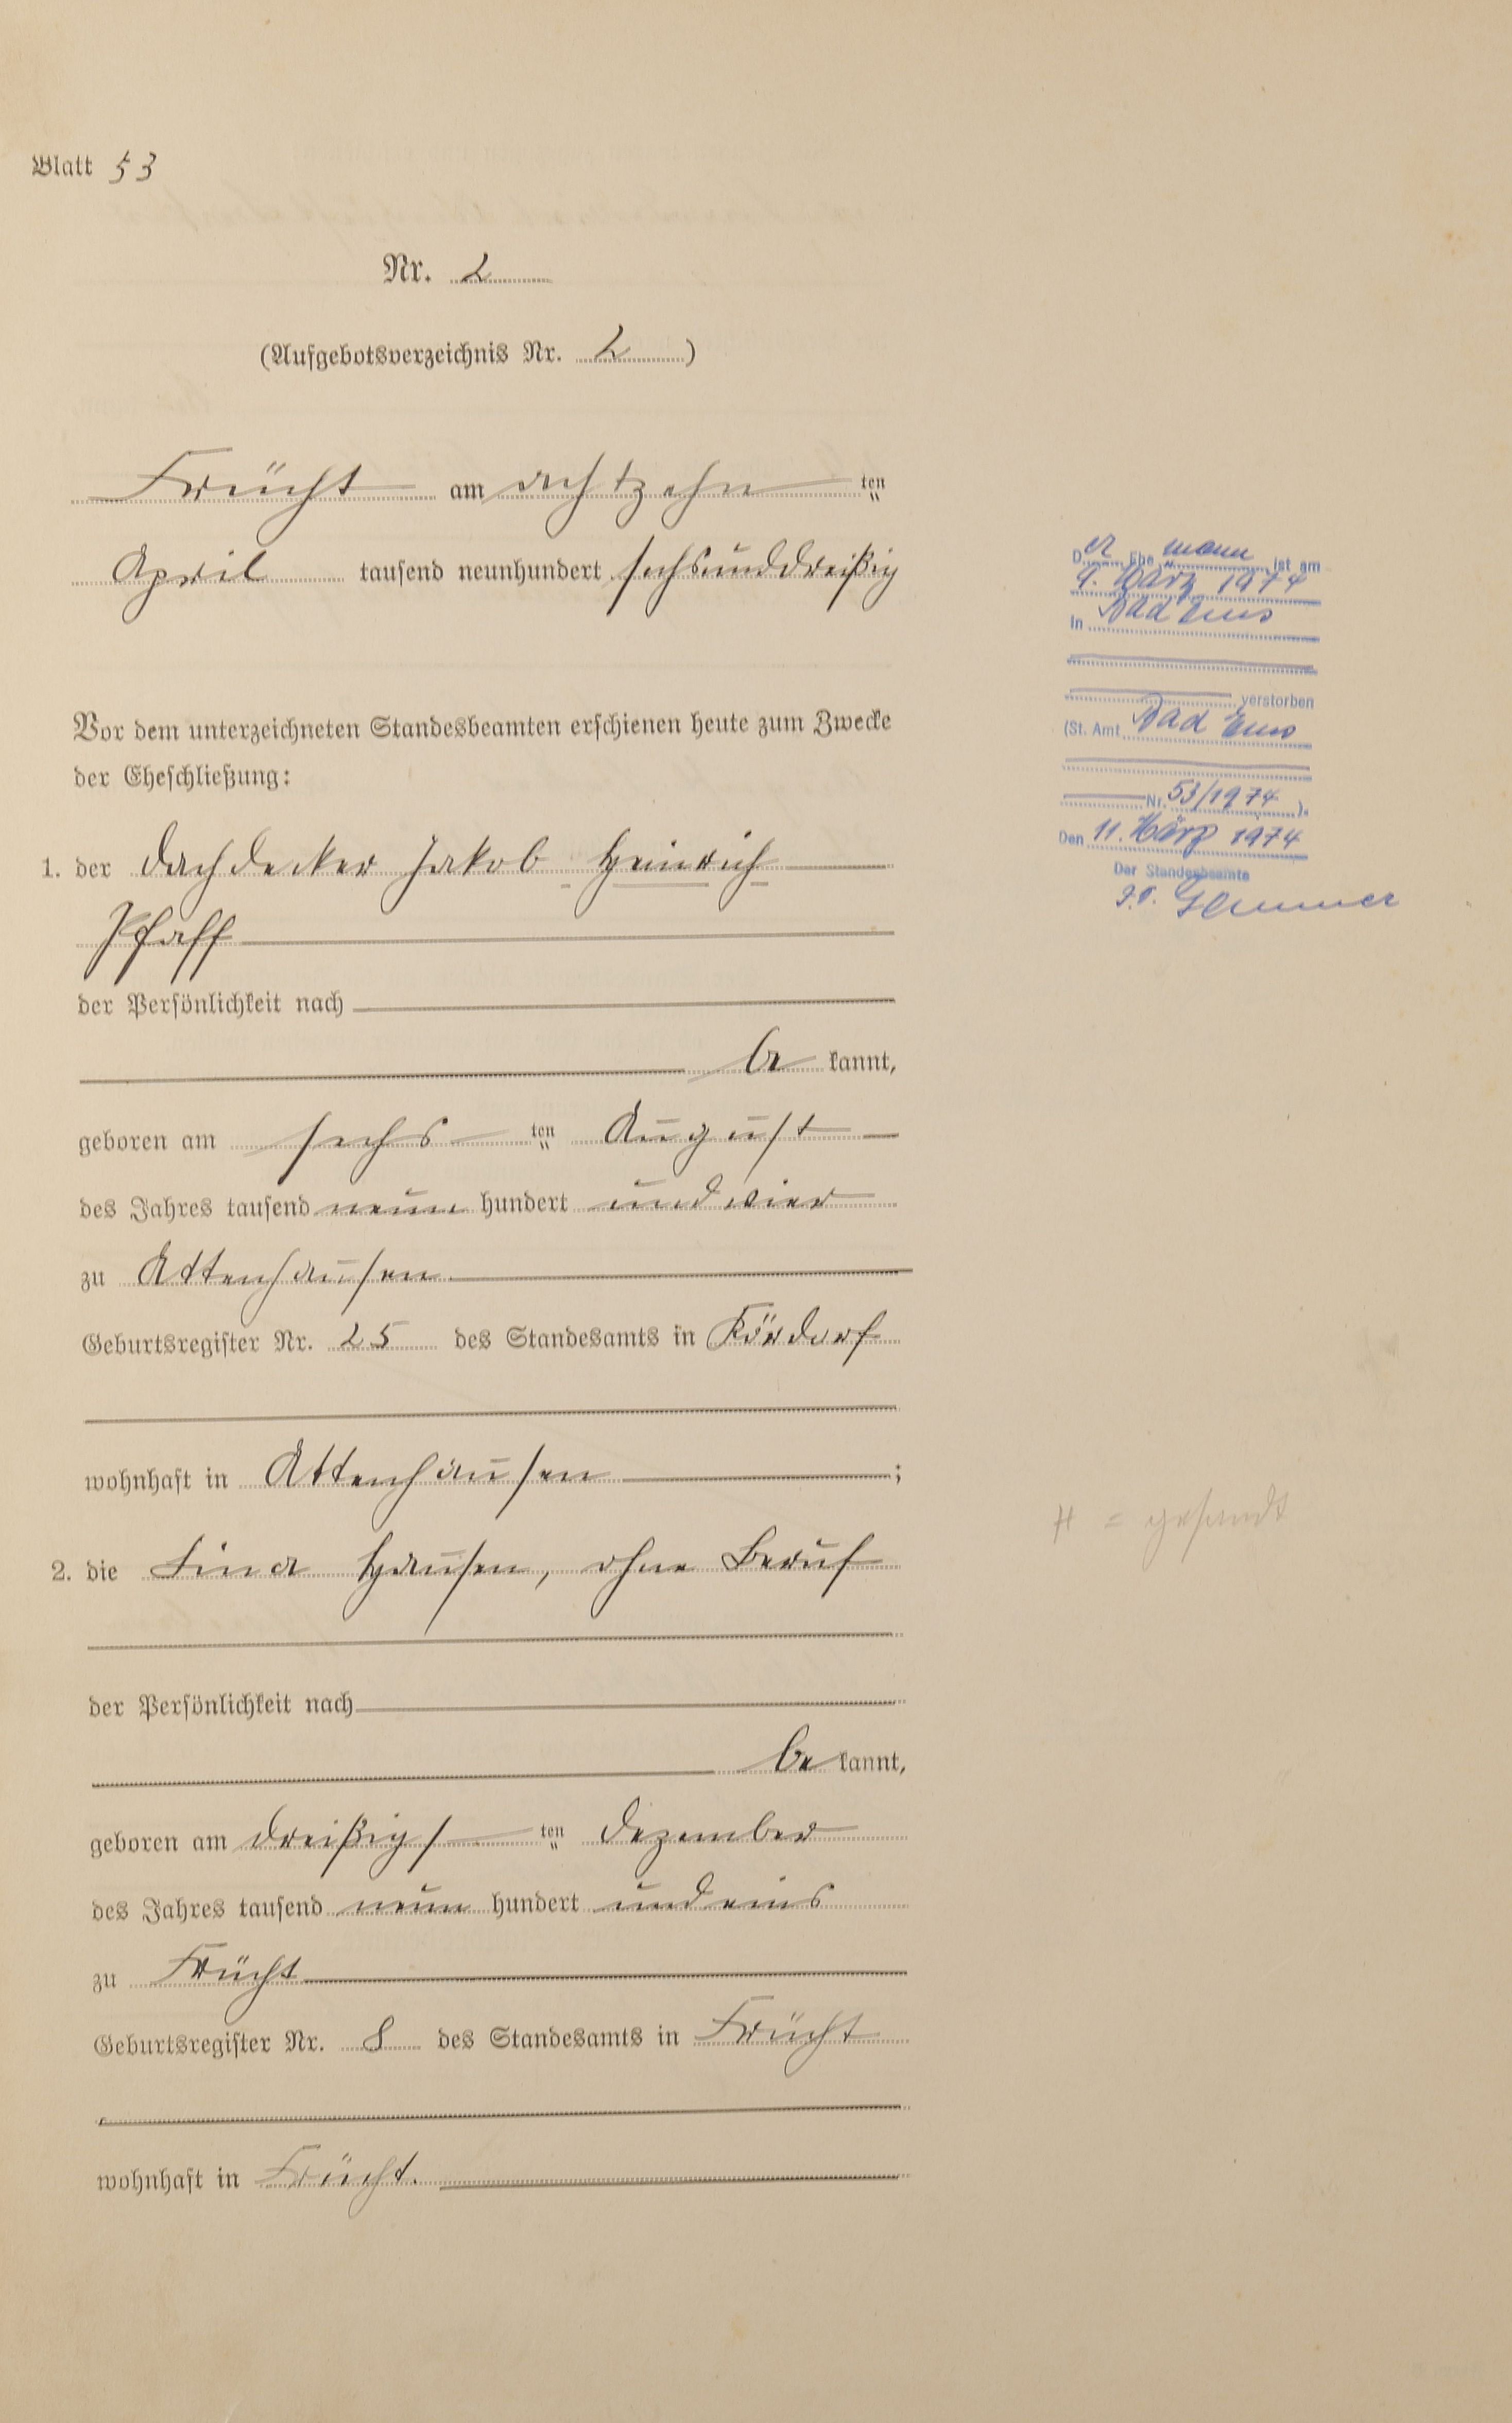 Blatt 53
Nr. 2
(Aufgebotsverzeichnis Nr. 2)
Frücht am achtzehn ten
April tausend neunhundert sechsunddreißig
Vor dem unterzeichneten Standesbeamten erschienen heute zum Zwecke
der Eheschließung:
1. der Dachdecker Jakob Heinrich
Pfaff
der Persönlichkeit nach
be kannt,
geboren am sechs ten August
des Jahres tausend neun hundert und vier
zu Attenhausen
Geburtsregister Nr. 25 des Standesamts in Kördorf
wohnhaft in Attenhausen ;
2. die Lina Hausen, ohne Beruf
der Persönlichkeit nach
be kannt,
geboren am dreißigs ten Dezember
des Jahres tausend neun hundert und eins
zu Frücht
Geburtsregister Nr. 8 des Standesamts in Frücht
wohnhaft in Frücht.
Der Ehemann ist am
9. März 1974
in Bad Ems
verstorben
(St. Amt Bad Ems
Nr. 53/1974 ).
Den 11. März 1974
Der Standesbeamte